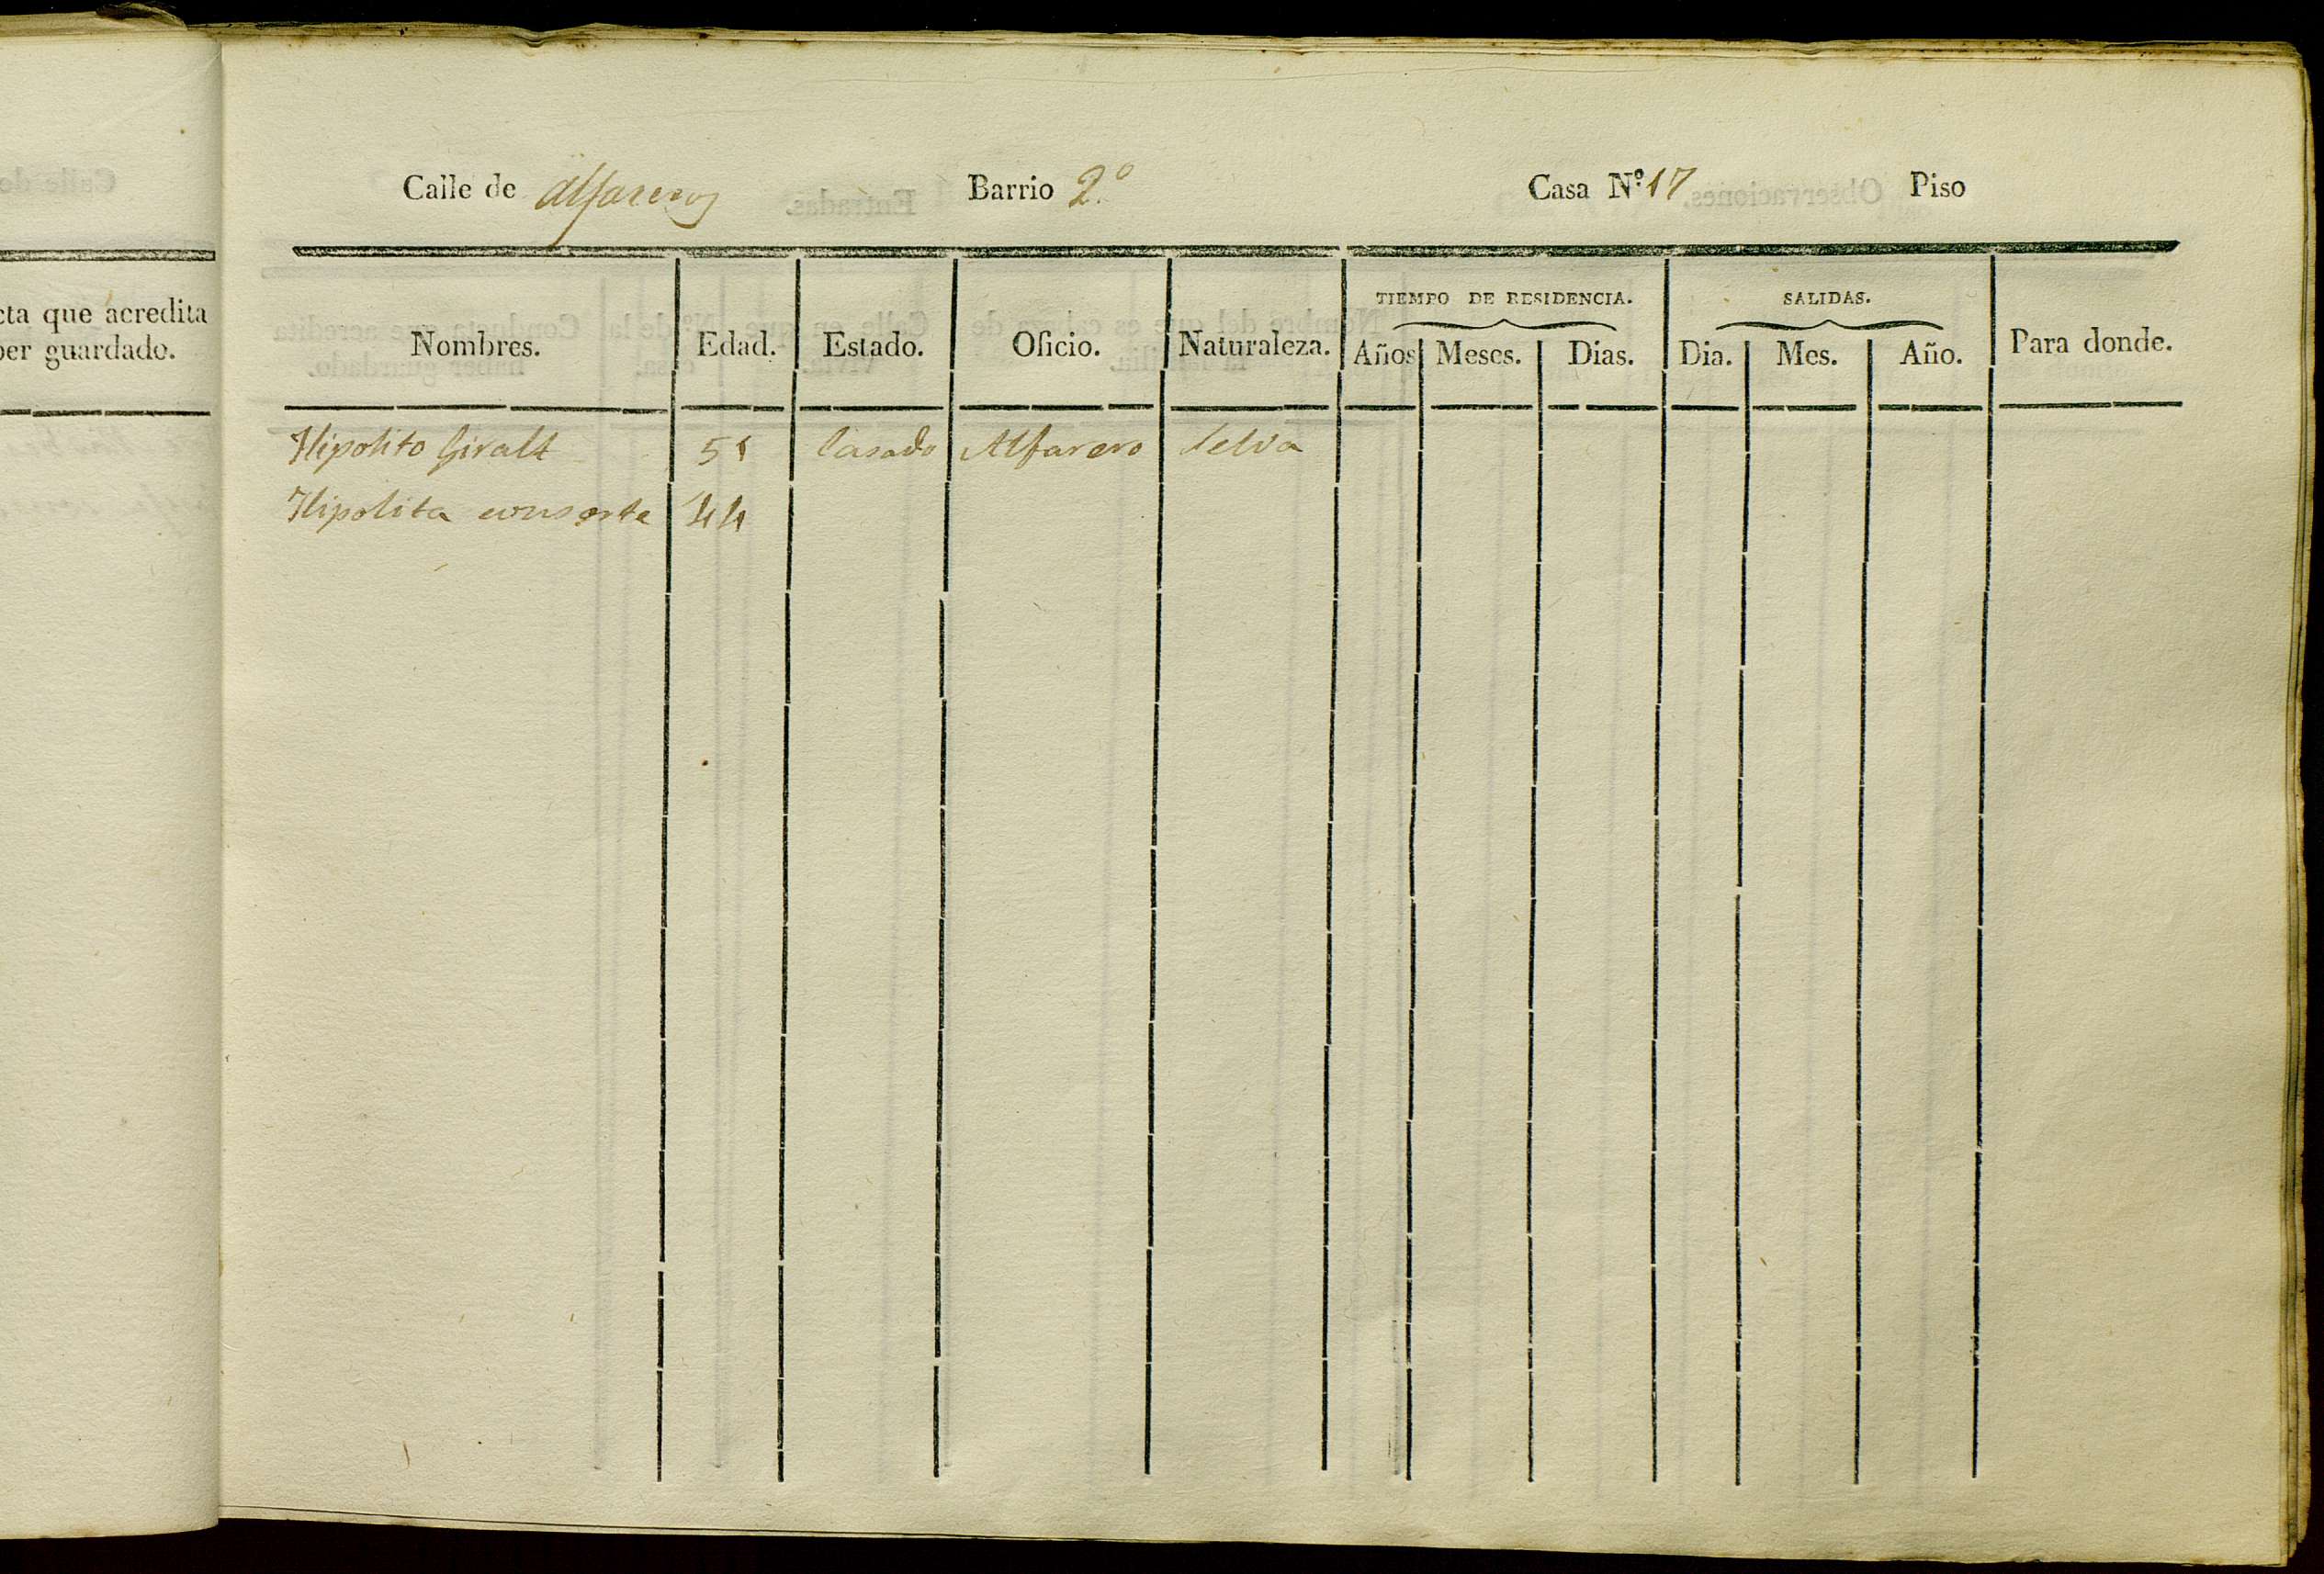 cta que acredita
ber guardado.
Calle de Alfareros Barrio 2.º Casa N.º 17 Piso
TIEMPO DE RESIDENCIA. SALIDAS.
Nombres. Edad. Estado. Oficio. Naturaleza. Años Meses. Dias. Dia. Mes. Año. Para donde.
Hipolito Giralt 51 Casado Alfarero Selva
Hipolita consorte 44